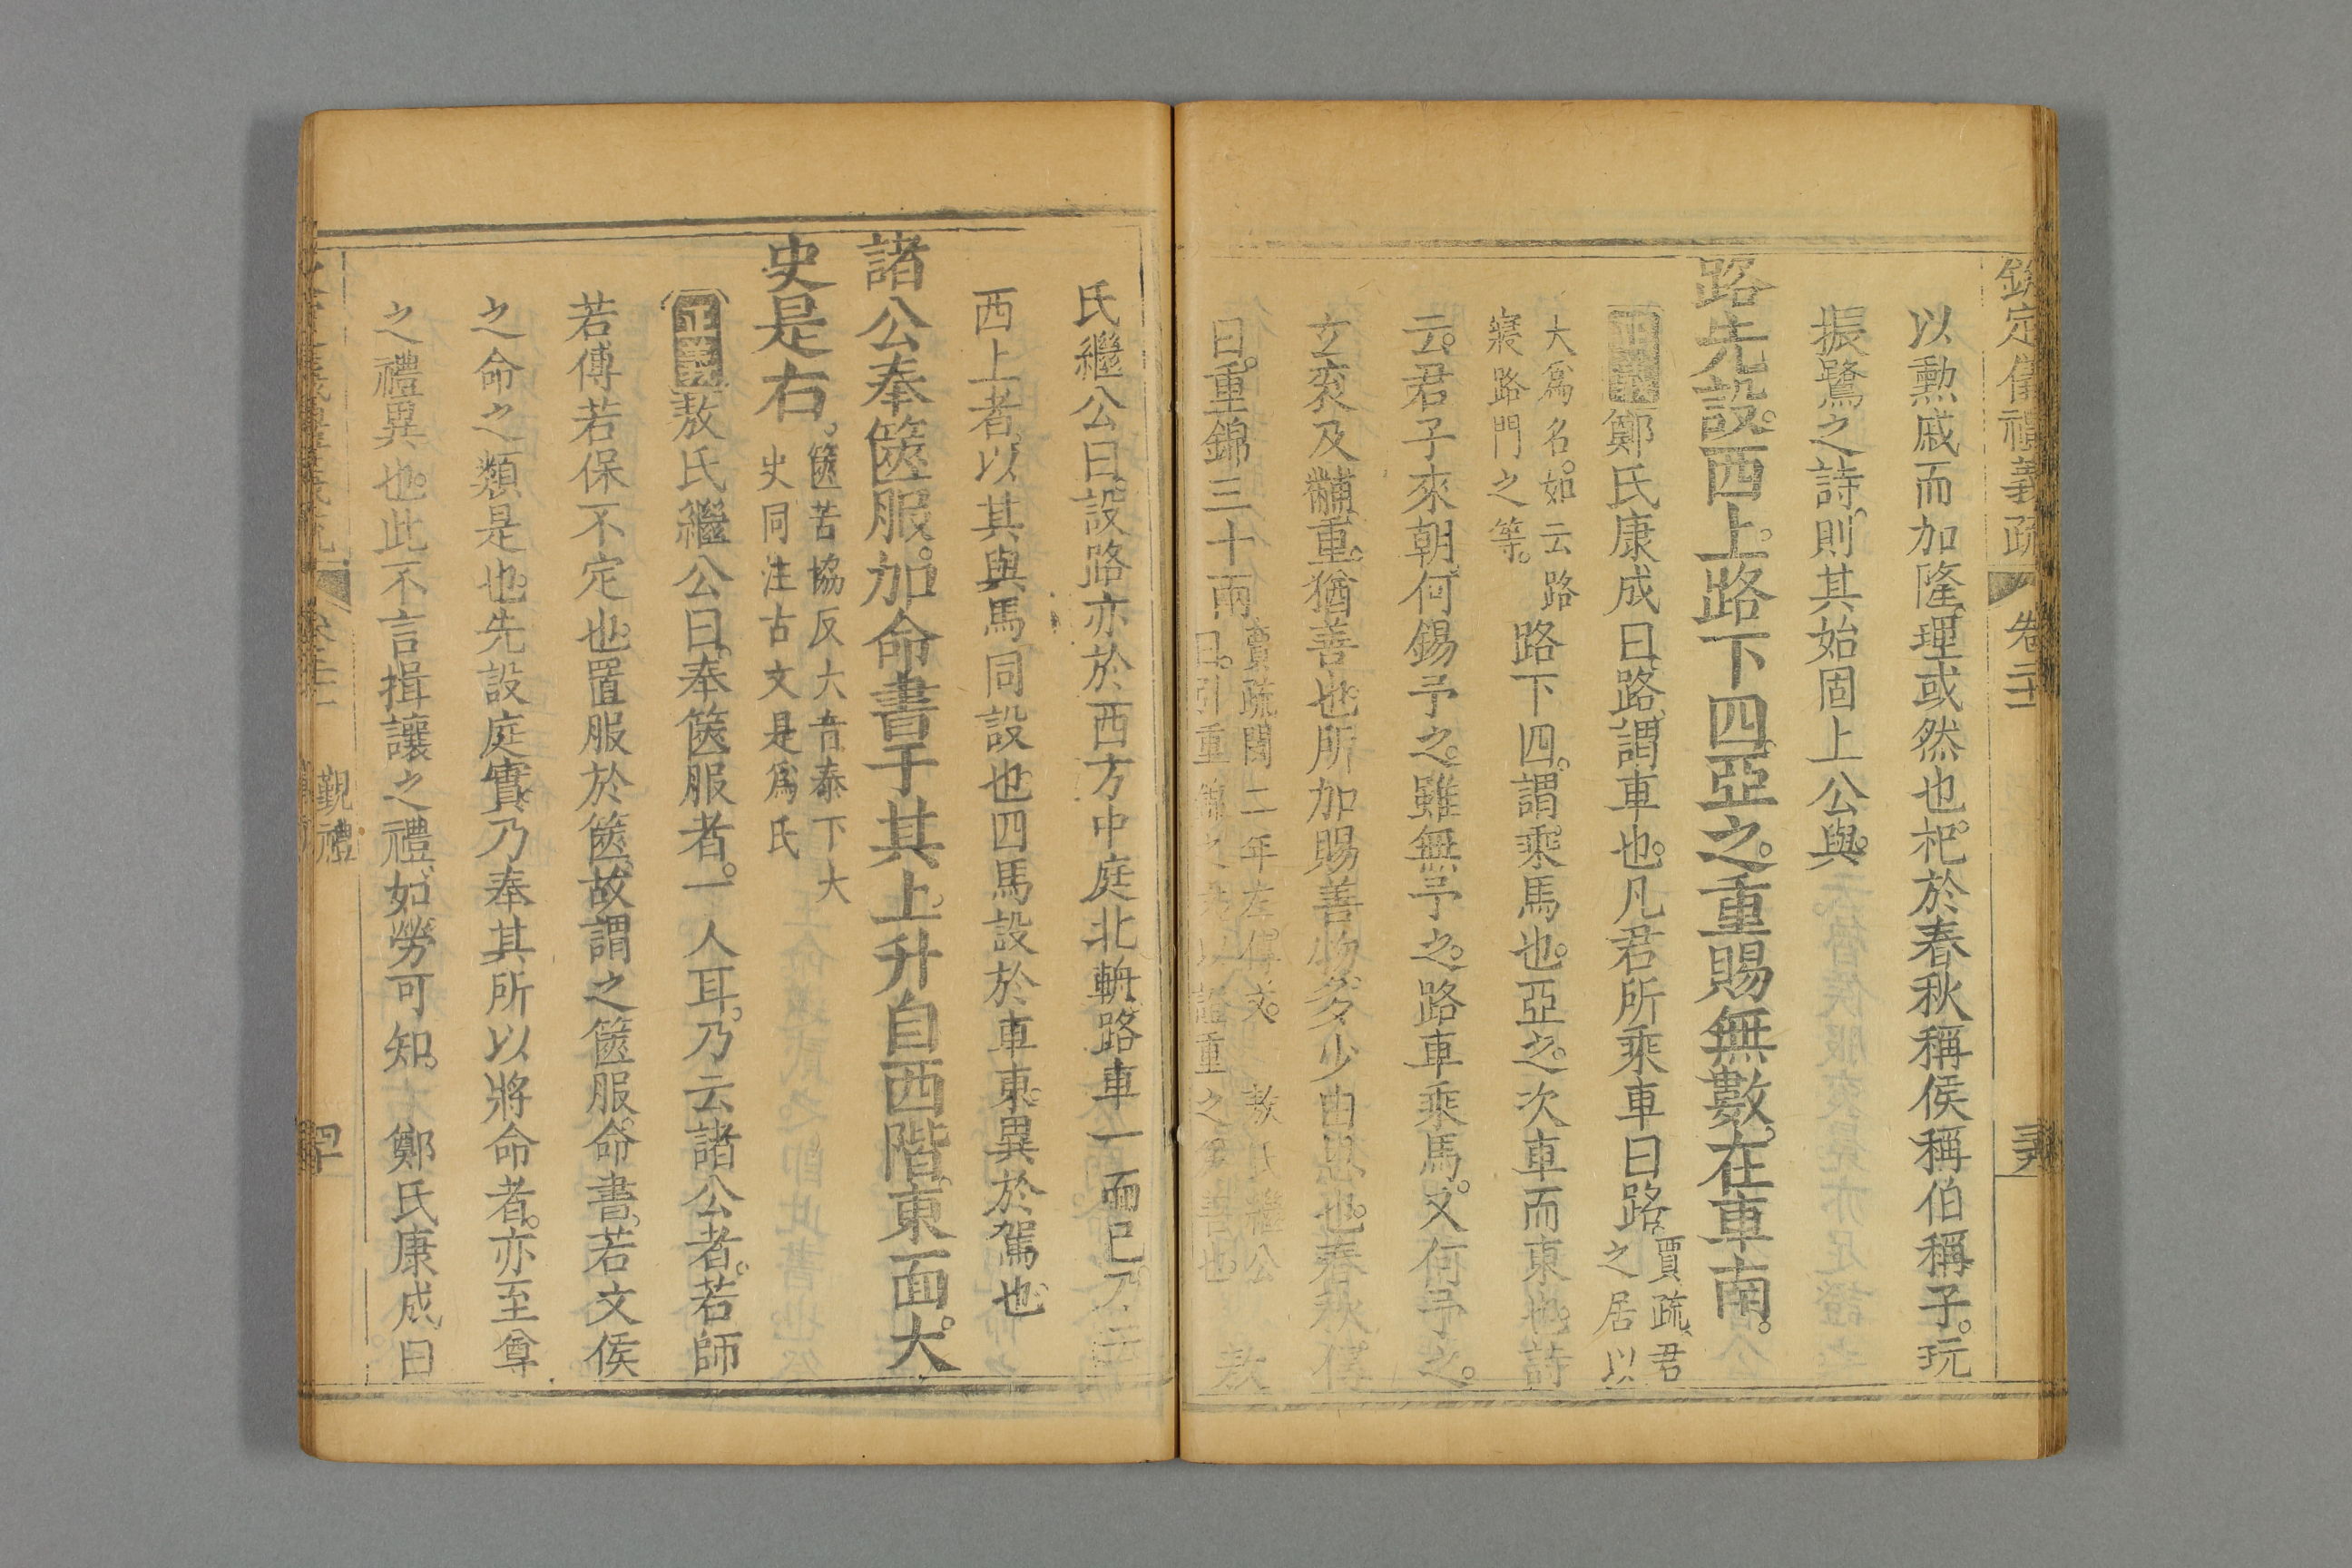 欽定儀禮義疏 卷二十一
以勲戚而加隆。理或然也。杞於春秋稱侯稱伯稱子。玩
振鷺之詩。則其始固上公與。
路先設。西上。路下四。亞之。重賜無數。在車南。
正義 鄭氏康成曰。路。謂車也。凡君所乘車曰路。賈疏。君之居以
大爲名。如云路寢路門之等。路下四。謂乘馬也。亞之。次車而東也。詩
云。君子來朝。何錫予之。雖無予之。路車乘馬。又何予之。
玄衮及黼。重。猶善也。所加賜善物。多少由恩也。春秋傳
曰。重錦三十兩。賈疏。閔二年左傳文。引重錦之美。以證重之爲善也。 敖
氏繼公曰。設路亦於西方中庭北輈。路車一而已。乃云
西上者。以其與馬同設也。四馬設於車東。異於駕也。
諸公奉篋服。加命書于其上。升自西階。東面。大
史是右。篋苦協反大音泰下大史同注古文是爲氏
正義 敖氏繼公曰。奉篋服者。一人耳。乃云諸公者。若師
若傅若保不定也。置服於篋。故謂之篋服。命書。若文侯
之命之類是也。先設庭實。乃奉其所以將命者。亦至尊
之禮異也。此不言揖讓之禮。如勞可知。 鄭氏康成曰
覲禮